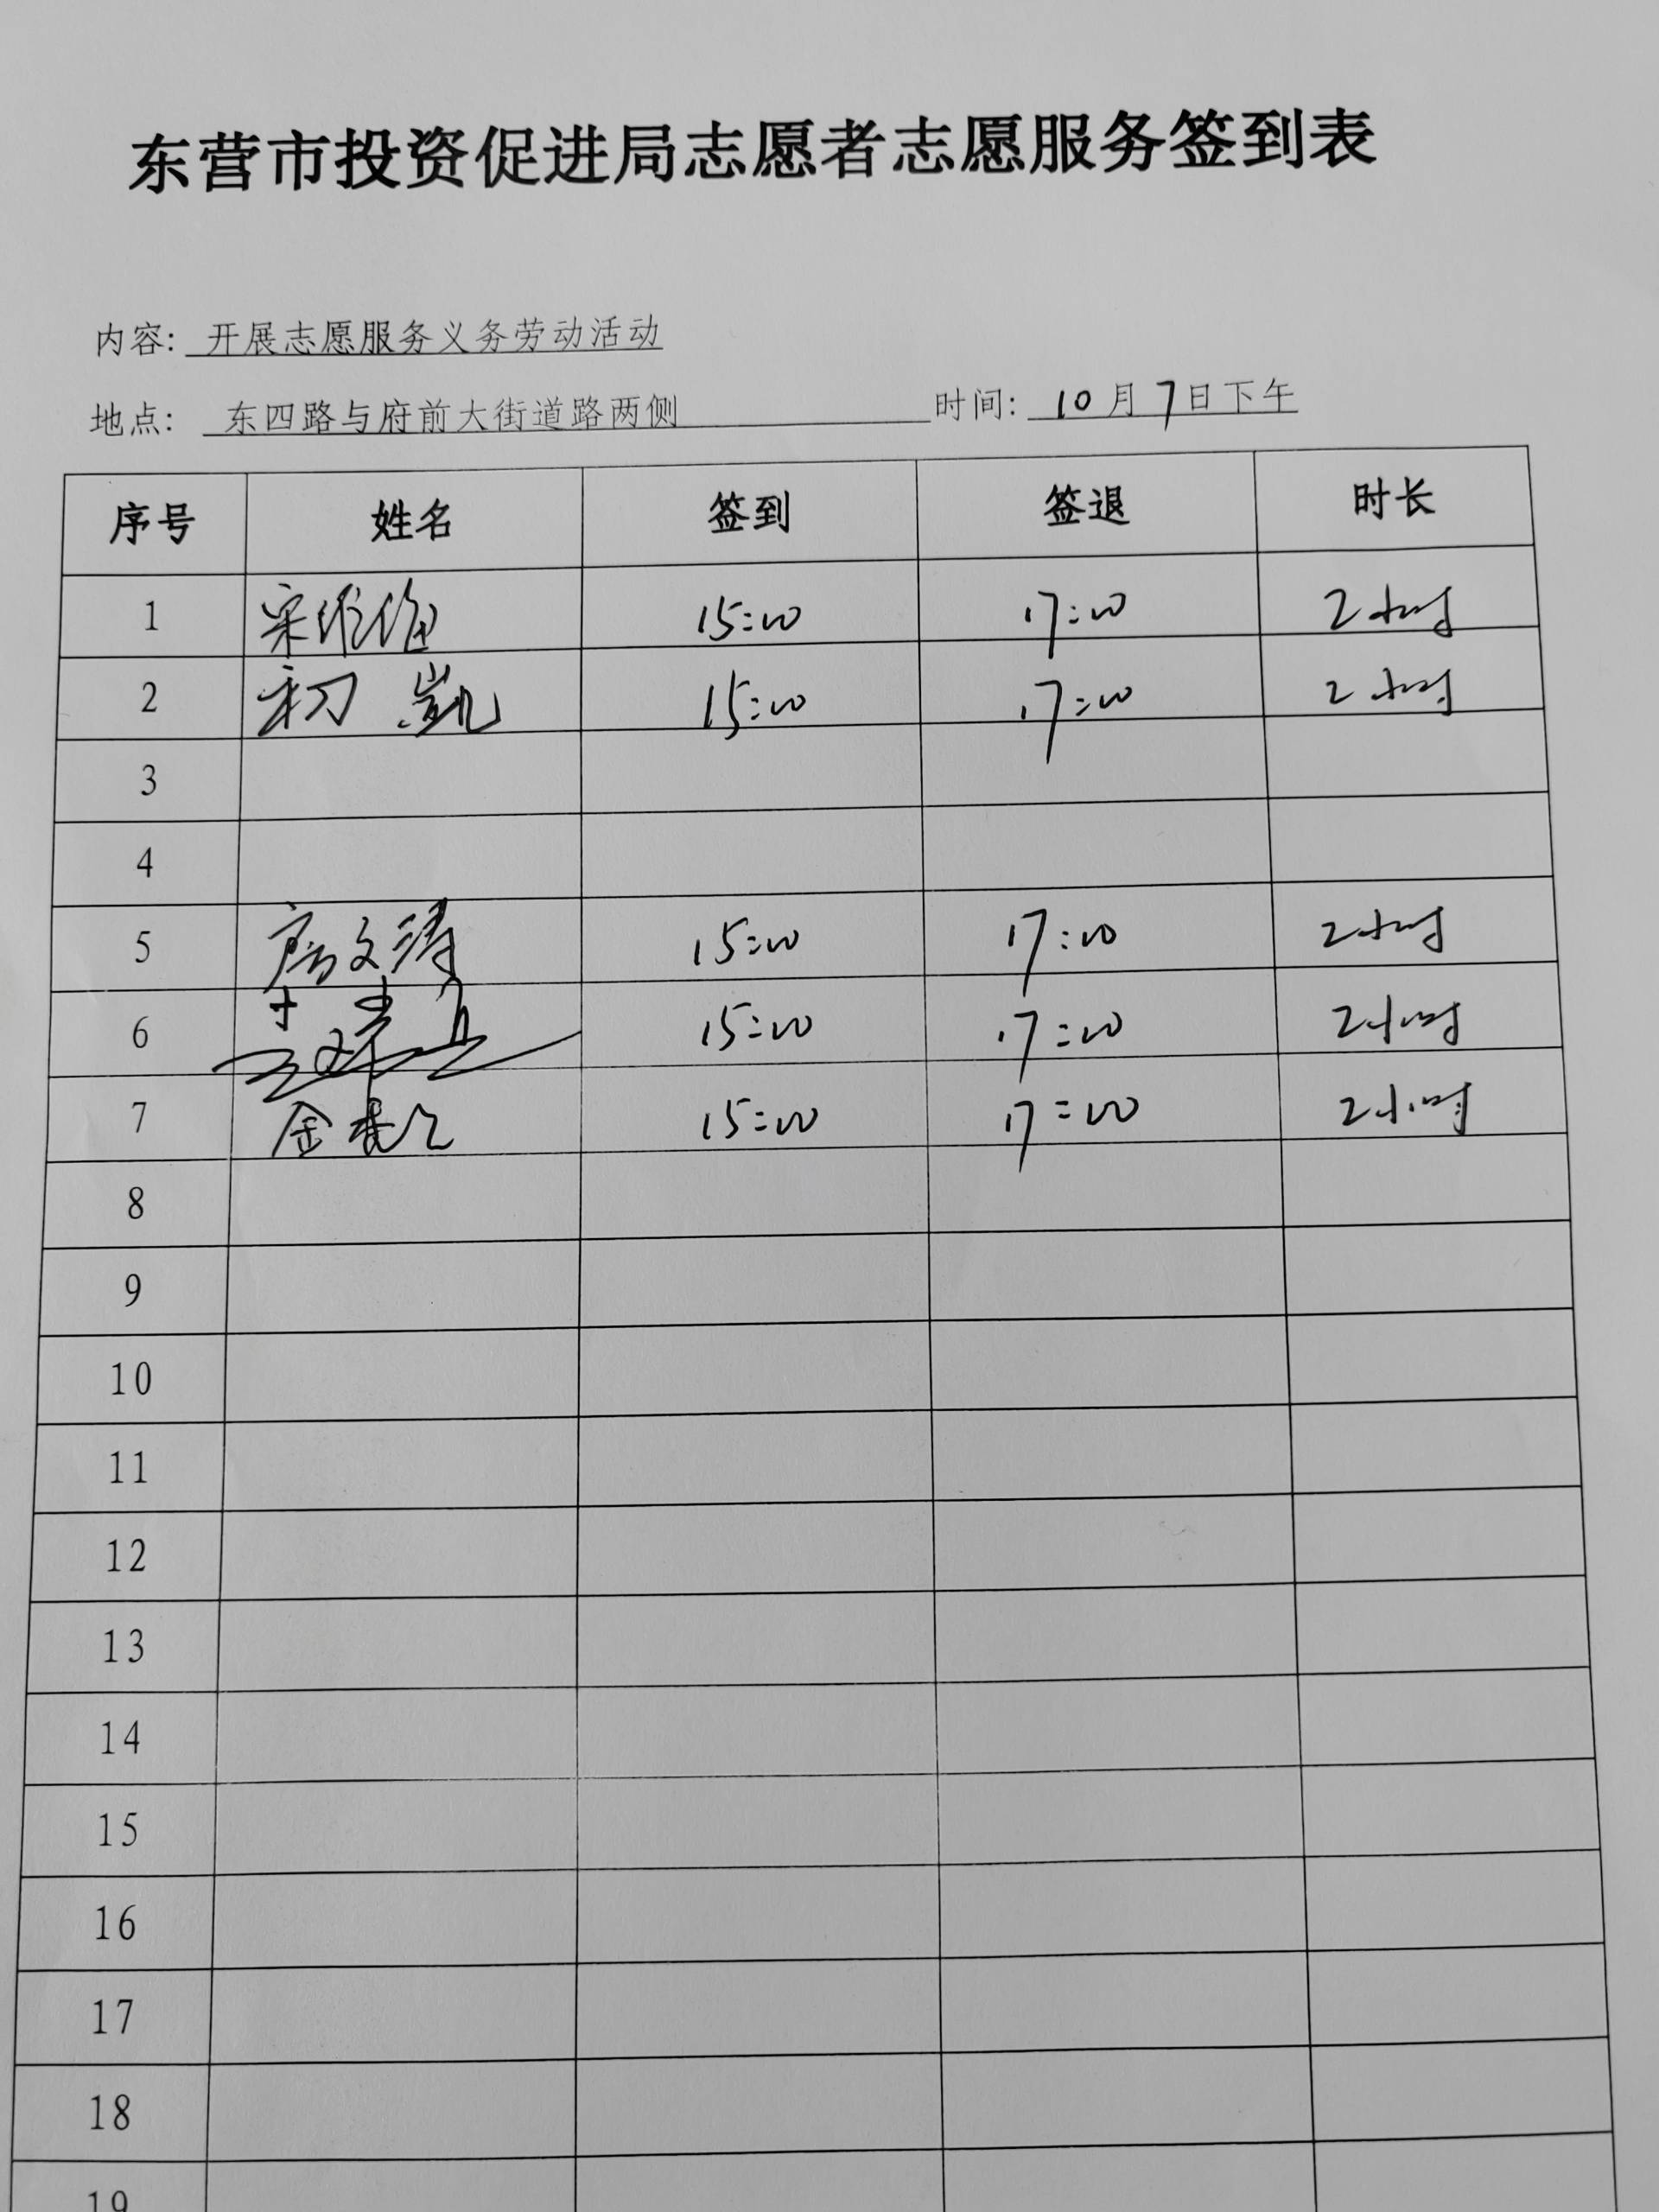 东营市投资促进局志愿者志愿服务签到表
内容: 开展志愿服务义务劳动活动
地点: 东四路与府前大街道路两侧 时间: 10月7日下午
序号 姓名 签到 签退 时长
1 15:00 17:00 2小时
2 初凯 15:00 17:00 2小时
3
4
5 房文涛 15:00 17:00 2小时
6 15:00 17:00 2小时
7 15:00 17:00 2小时
8
9
10
11
12
13
14
15
16
17
18
19